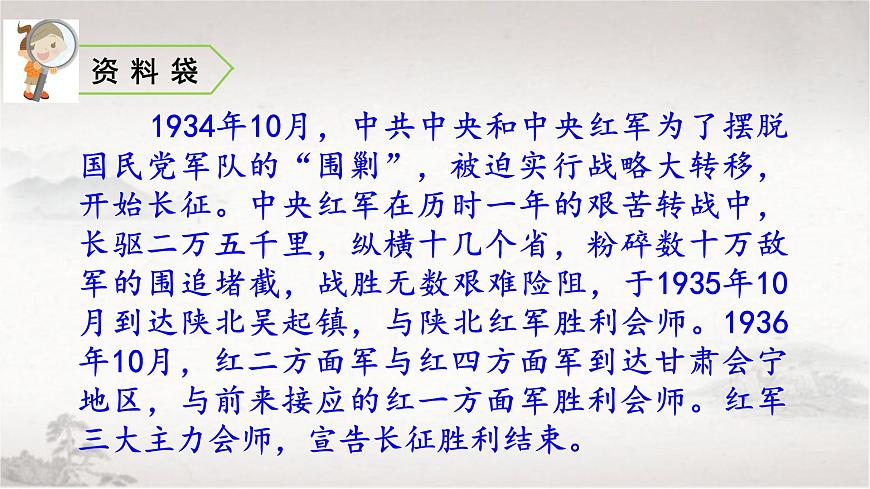 资料袋
1934年10月，中共中央和中央红军为了摆脱
国民党军队的“围剿”，被迫实行战略大转移，
开始长征。中央红军在历时一年的艰苦转战中，
长驱二万五千里，纵横十几个省，粉碎数十万敌
军的围追堵截，战胜无数艰难险阻，于1935年10
月到达陕北吴起镇，与陕北红军胜利会师。1936
年10月，红二方面军与红四方面军到达甘肃会宁
地区，与前来接应的红一方面军胜利会师。红军
三大主力会师，宣告长征胜利结束。